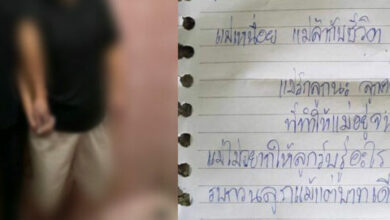 แม่เหนื่อย แม่ล้ากับชีวิต
แม่รักลูกนะ ลูก
ที่ทำให้แม่อยู่
แม่ไม่อยากให้ลูกรับรู้อะไร
รบกวนลูกแม้แต่บาทเดี